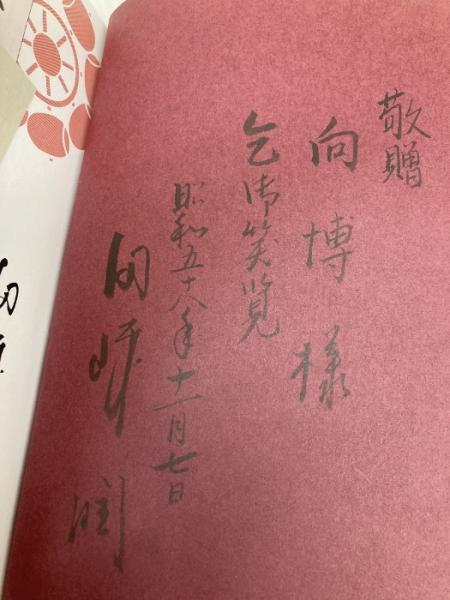 敬贈
向博様
乞御笑覧
昭和五十八年十一月七日
潤